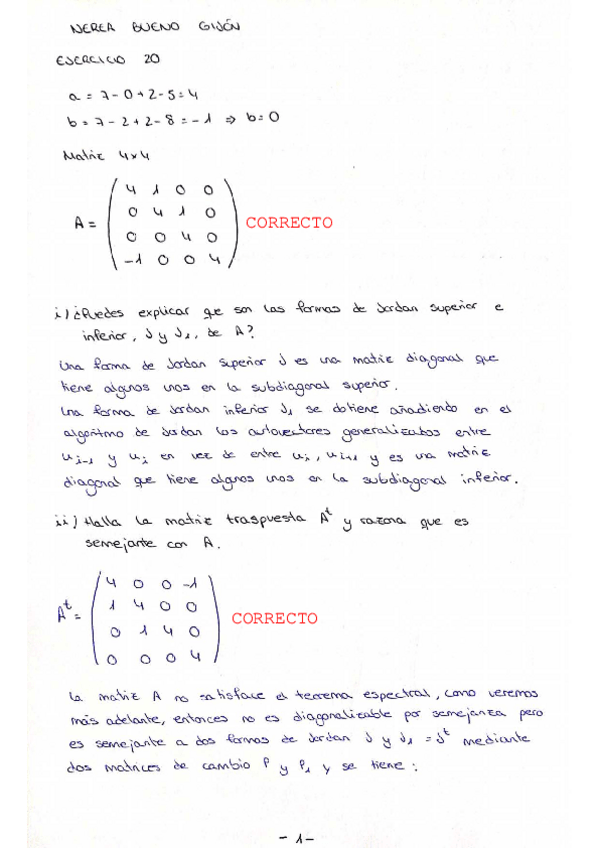 NEREA BUENO GIJÓN
EJERCICIO 20
a = 7-0+2-5=4
b = 7-2+2-8 = -1 ⇒ b=0
Matriz 4x4
4 1 0 0
0 4 1 0
A = 0 0 4 0 CORRECTO
-1 0 0 4
i) ¿Puedes explicar que son las formas de Jordan superior e
inferior, J y J₁, de A?
Una forma de Jordan superior J es una matriz diagonal que
tiene algunos unos en la subdiagonal superior.
Una forma de Jordan inferior J₁ se obtiene añadiendo en el
algoritmo de Jordan los autovectores generalizados entre
u_{i-1} y u_i en vez de entre u_i, u_{i+1} y es una matriz
diagonal que tiene algunos unos en la subdiagonal inferior.
ii) Halla la matriz traspuesta Aᵗ y razona que es
semejante con A.
4 0 0 -1
1 4 0 0
Aᵗ = 0 1 4 0 CORRECTO
0 0 0 4
La matriz A no satisface el teorema espectral, como veremos
más adelante, entonces no es diagonalizable por semejanza pero
es semejante a dos formas de Jordan J y J₁ = Jᵗ mediante
dos matrices de cambio P y P₁ y se tiene:
- 1 -